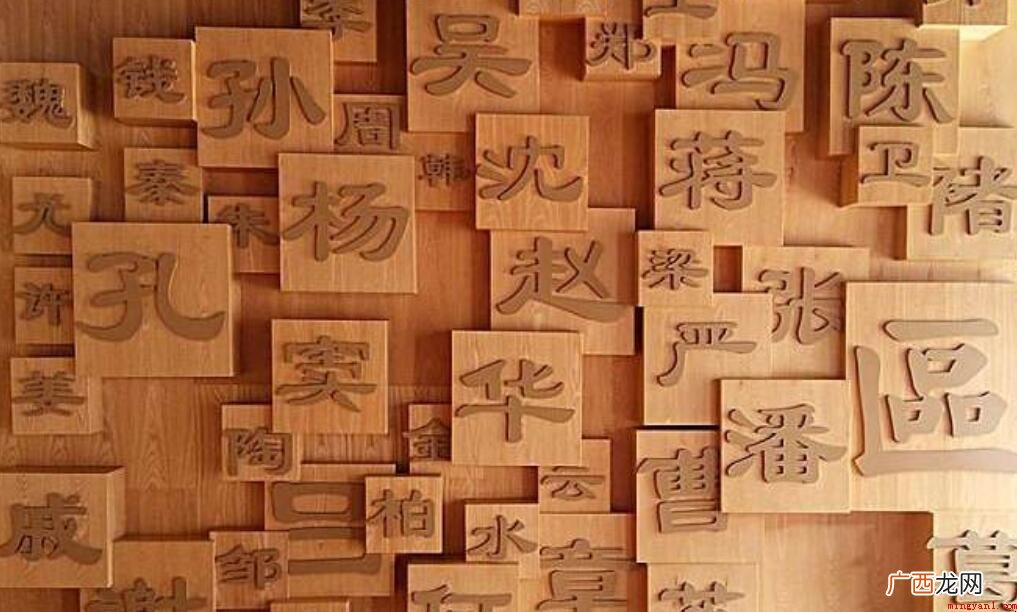 李
吴
郑
冯
陈
魏
钱
孙
周
韩
沈
蒋
卫
褚
尤
秦
朱
杨
孔
许
赵
梁
张
严
區
姜
窦
华
潘
陶
金
云
曹
戚
吕
柏
水
邹
章
谢
葛
广西龙网
mingyan1.com